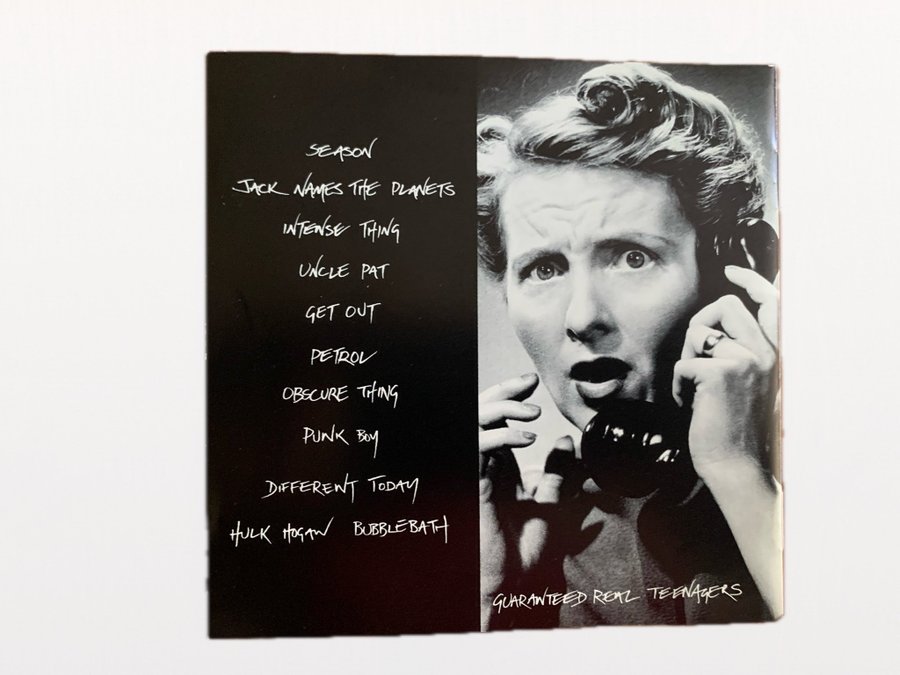 SEASON
JACK NAMES THE PLANETS
INTENSE THING
UNCLE PAT
GET OUT
PETROL
OBSCURE THING
PUNK BOY
DIFFERENT TODAY
HULK HOGAN BUBBLEBATH
GUARANTEED REAL TEENAGERS